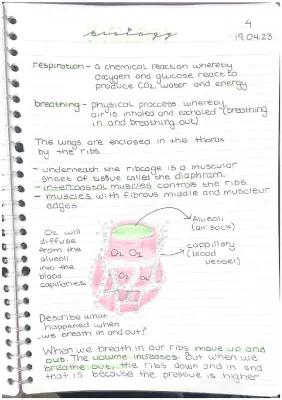 4
biology
19.04.23
respiration - a chemical reaction whereby
oxygen and glucose react to
produce CO2, water and energy
breathing - physical process whereby
air is inhaled and exhaled (breathing
in and breathing out)
The lungs are enclosed in the thorax
by the ribs.
- underneath the ribcage is a muscular
sheet of tissue called the diaphragm.
- intercostal muscles controls the ribs.
- muscles with fibrous middle and muscleur
edges
Alueoli
(air sack)
O2 will
diffuse
from the
alveoli
into the
blood
capillaries.
O2 O2
O2 O2
cappillary
(blood
vessel)
Describe what
happened when
we breath in and out?
When we breath in our ribs move up and
out. The volume increases. But when we
breathe out, the ribs down and in and
that is because the pressure is higher